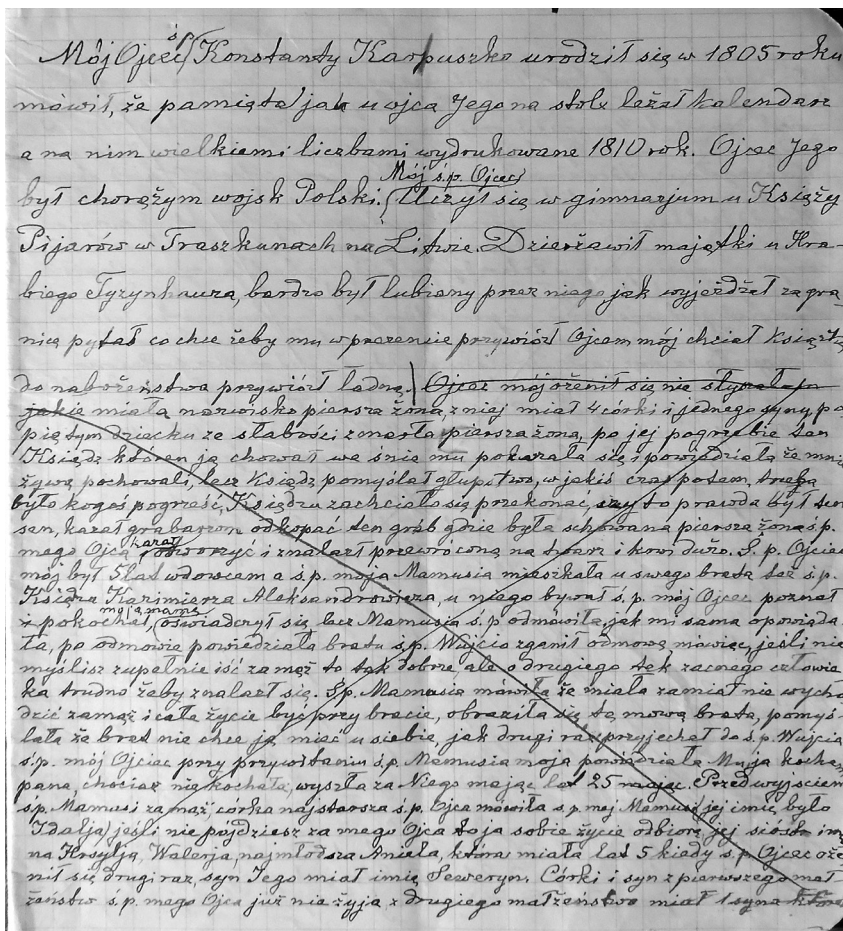 Mój Ojciec ś.p. Konstanty Karpuszko urodził się w 1805 roku
mówił, że pamięta jak u ojca Jego na stole leżał kalendarz
a na nim wielkiemi liczbami wydrukowane 1810 rok. Ojciec Jego
był chorążym wojsk Polski. Mój ś.p. Ojciec Uczył się w gimnarjum u Księży
Pijarów w Traszkunach na Litwie. Dzierżawił majątki u Hra-
biego Tyzynhauza, bardzo był lubiany przez niego jak wyjeżdżał zagra-
nicę pytał co chce żeby mu w prezencie przywiózł Ojcem mój chciał Książkę
do nabożeństwa przywiózł ładną. Ojciec mój ożenił się nie słyszałaja
jakie miała nazwisko piersza żona, z niej miał 4 córki i jednego syna, po
piętym dziecku ze słabości zmarła piersza żona, po jej pogrzebie ten
Ksiądz któren ją chował we śnie mu pokazała się i powiedziała że mnie
żywą pochowali, lecz Ksiądz pomyślał głupstwo, w jakiś czas potem, trzeba
było kogoś pogrześć, Księdzu zachciało się przekonać, czy to prawda był ten
sen, kazał grabarzom odkopać ten grób gdzie była schowana piersza żona ś.p.
mego Ojca kazał otworzyć i znalazł przewróconą na twarz i krwi dużo. Ś.p. Ojciec
mój był 5 lat wdowcem a ś.p. moja Mamusia mieszkała u swego brata też ś.p.
Księdza Kazimierza Aleksandrowicza, u niego bywał ś.p. mój Ojciec poznał
i pokochał, moją mamę oświadczył się, lecz Mamusia ś.p. odmówiła, jak mi sama opowiada-
ła, po odmowie powiedziała bratu ś.p. Wujcio zganił odmowę, mówiąc, jeśli nie
myślisz zupełnie iść zamąż to tak dobrze, ale o drugiego tak zacnego człowie-
ka trudno żeby znalazł się. Ś.p. Mamusia mówiła że miała zamiar nie wycho-
dzić zamąż i całe życie być przy bracie, obraziła się tą mową brata, pomyś-
lała że brat nie chce ją mieć u siebie, jak drugi raz przyjechał do ś.p. Wujcia
ś.p. mój Ojciec przy przywitaniu ś.p. Mamusia moja powiedziała Mu ja kocham
pana, chociaż nie kochała, wyszła za Niego mając lat 25 mając. Przed wyjściem
ś.p. Mamusi zamąż, córka najstarsza ś.p. Ojca mówiła ś.p. mej Mamusi, jej imię było
Idalja, jeśli nie pójdziesz za mego Ojca to ja sobie życie odbiorę, jej sióstr imio-
na Hersylja, Walerja, najmłodsza Aniela, która miała lat 5 kiedy ś.p. Ojciec oże-
nił się drugi raz, syn Jego miał imię Seweryn. Córki i syn z pierwszego mał-
żeństwa ś.p. mego Ojca już nie żyją z drugiego małżeństwa miał 1 syna